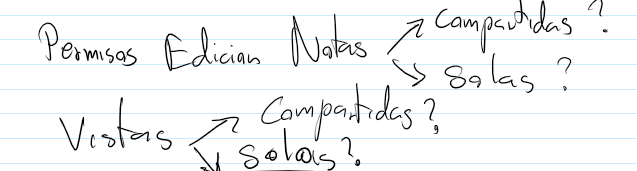 Permisos Edician Notas
Compartidas ?
Solas ?
Vistas
Compartidas ?
Solas ?